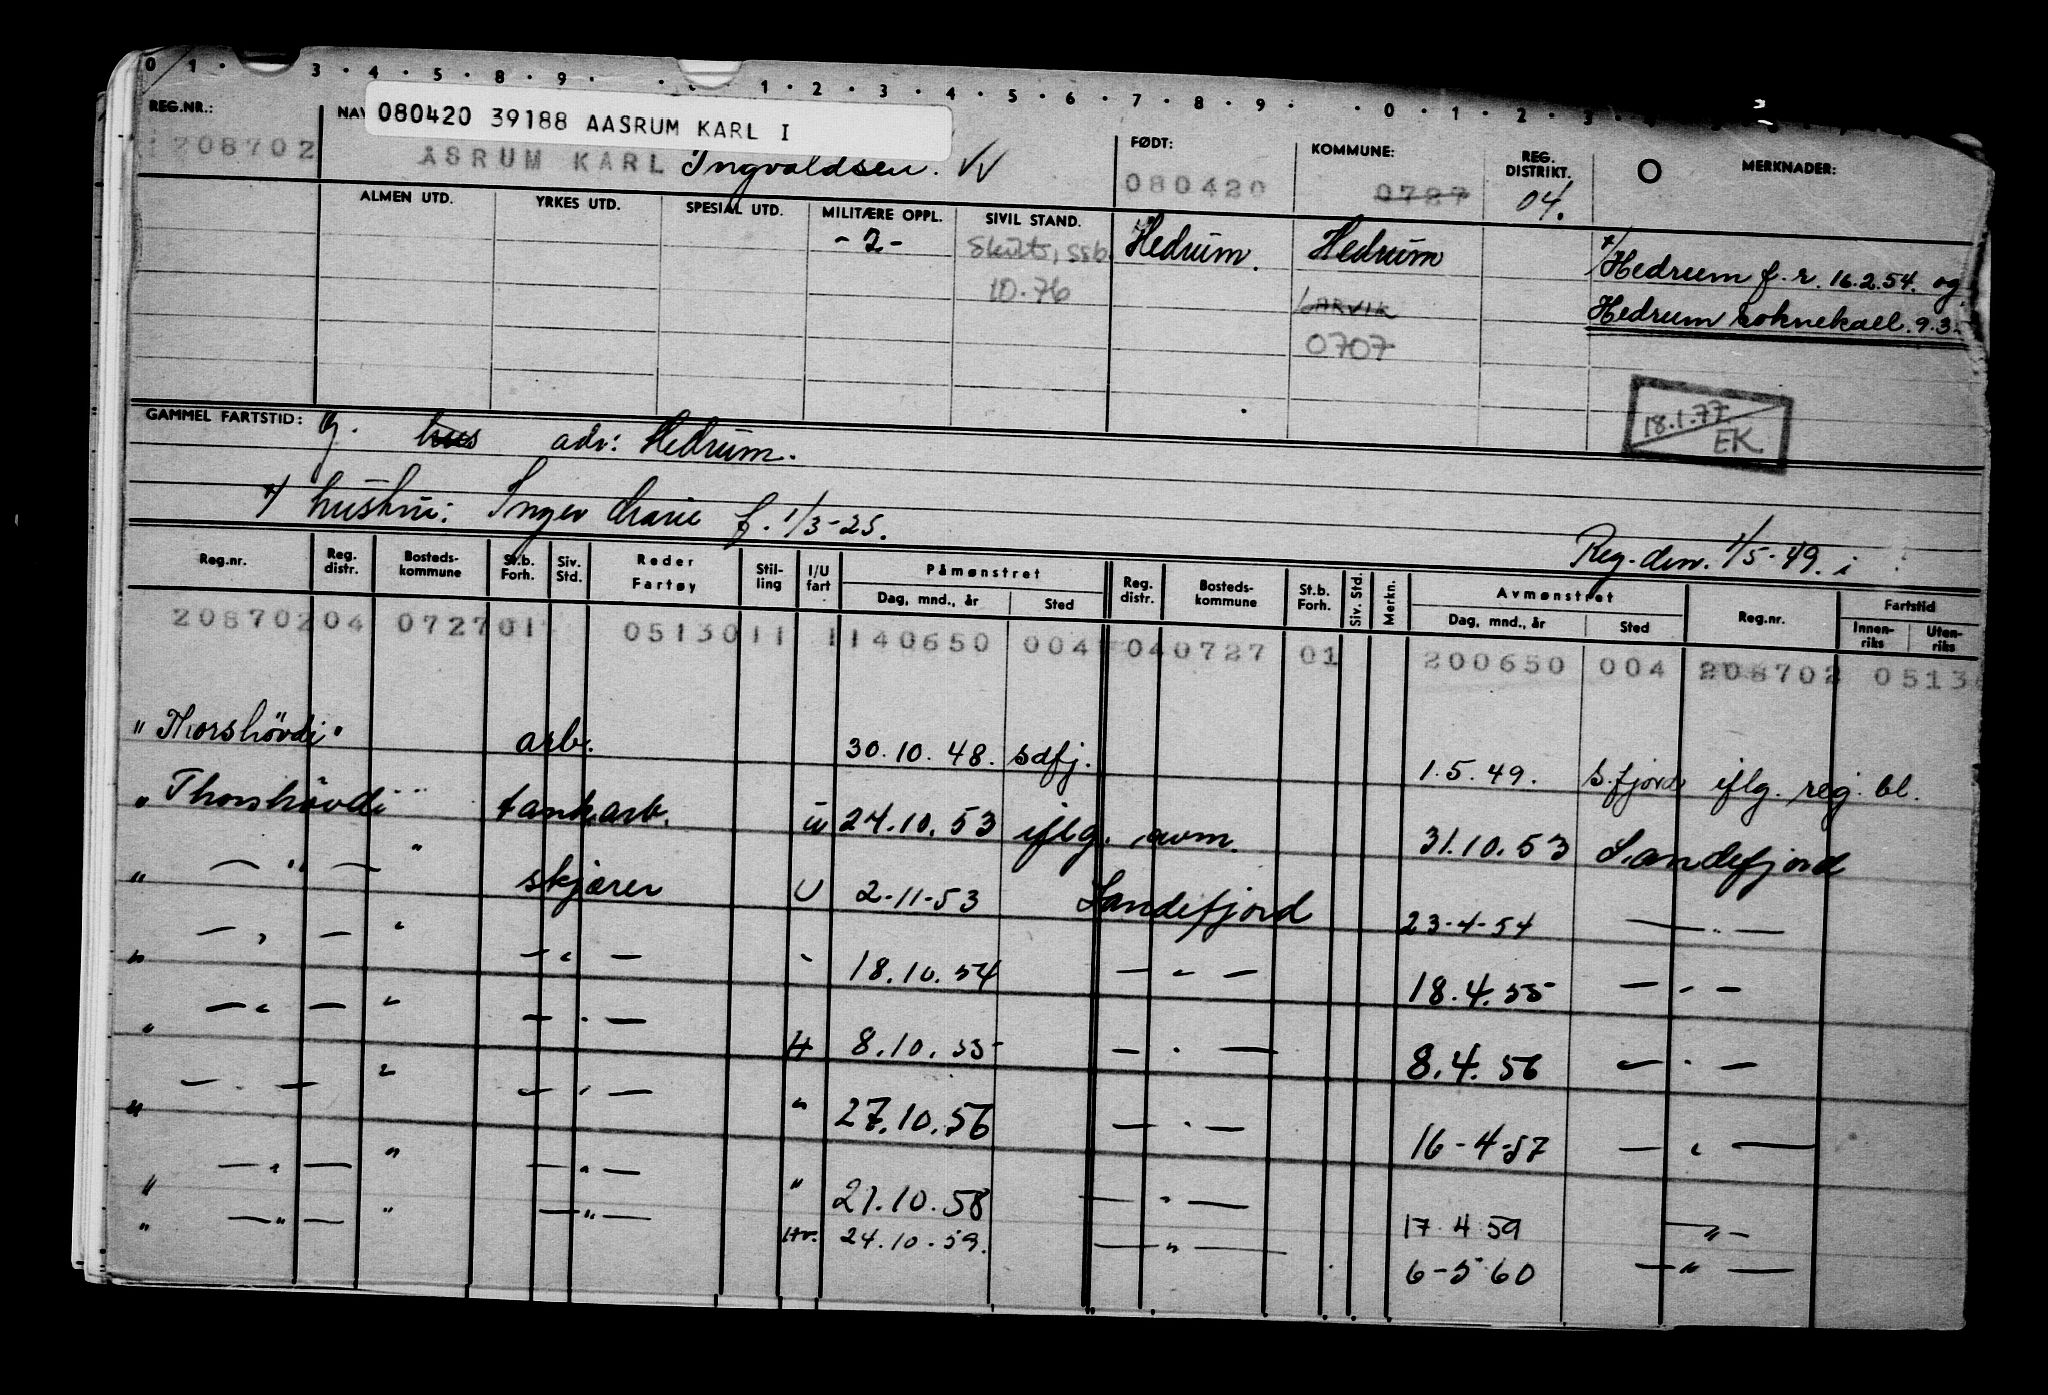 0 1 · 3 · 4 · 5 · 8 · 9 · 1 · 2 · 3 · 4 · 5 · 6 · 7 · 8 · 9 · 0 · 1 · 2 · 3
REG.NR.: FØDT: KOMMUNE: REG. DISTRIKT. MERKNADER:
080420 39188 AASRUM KARL I
208702 ÅSRUM KARL Ingvaldsen. 080420 0727 04.
ALMEN UTD. YRKES UTD. SPESIAL UTD. MILITÆRE OPPL. SIVIL STAND.
- 2 - Skilt, ssb. Hedrum. Hedrum +/Hedrum f.r. 16.2.54. og
10.76 LARVIK Hedrum soknekall. 9.3.
0707
18.1.77 EK
GAMMEL FARTSTID: g. hus adr: Hedrum.
+/ hustru: Inger Marie f. 1/3-25. Reg. den. 1/5-49. i
Reg.nr. Reg. distr. Bosteds-kommune St.b. Forh. Siv. Std. Reder Fartøy Stil-ling I/U fart Påmønstret Dag, mnd., år Sted Reg. distr. Bosteds-kommune St.b. Forh. Siv. Std. Merkn. Avmønstret Dag, mnd., år Sted Reg.nr. Fartstid Innen-riks Uten-riks
208702 04 0727 01 0513011 1 140650 004 04 0727 01 200650 004 208702 0513
"Thorshövdi" arb. 30.10.48. sdfj. 1.5.49. S.fjord iflg. reg. bl.
"Thorshövdi" tankarb. u 24.10.53 iflg. avm. 31.10.53 Sandefjord
" — " — " skjærer U 2-11-53 Sandefjord 23-4-54 — " —
" — " — " — " — " 18.10.54 — " — 18.4.55 — " —
" — " — " — " — H 8.10.55 — " — 8.4.56 — " —
" — " — " — " — " 27.10.56 — " — 16-4-57 — " —
" — " — " — " — " 21.10.58 — " — 17 4 59 — " —
" — " — " — " — Hv. 24.10.59. — " — 6-5-60 — " —